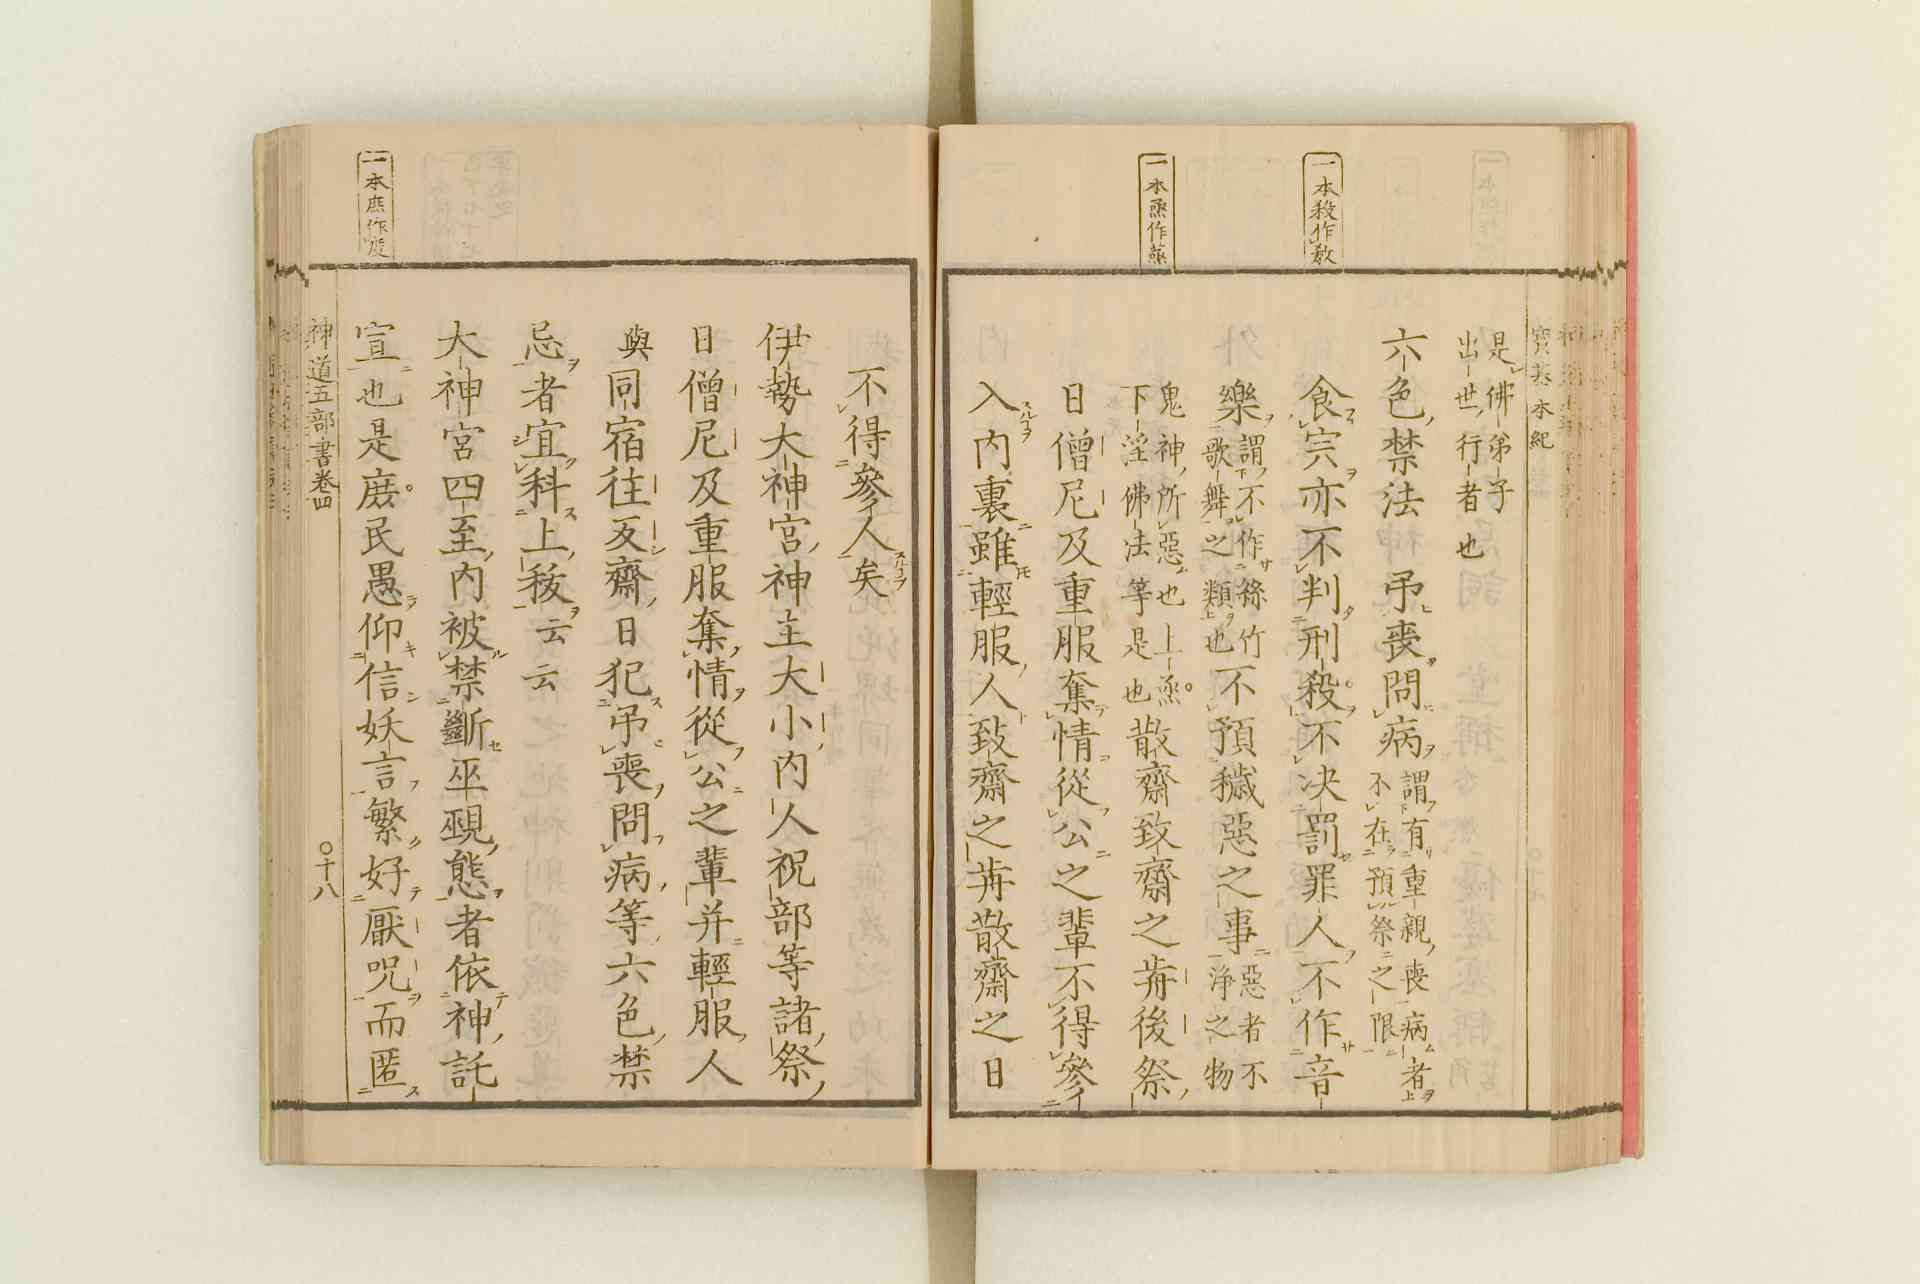 一本殺作敎
一本烝作蒸
寶基本紀
是佛弟子
出世行者也
六色禁法弔喪問病
謂有重親喪病者
不在預祭之限
食宍亦不判刑殺不决罰罪人不作音
樂
謂不作絲竹
歌舞之類也
不預穢惡之事
惡者不
浄之物
鬼神所惡也上烝
下淫佛法等是也
散齋致齋之前後祭
日僧尼及重服奪情從公之輩不得參
入内裏雖輕服人致齋之前散齋之日
不得參入矣
伊勢大神宮神主大小内人祝部等諸祭
日僧尼及重服奪情從公之輩并輕服人
與同宿往反齋日犯弔喪問病等六色禁
忌者宜科上秡云云
大神宮四至内被禁斷巫覡態者依神託
宣也是庶民愚仰信妖言繁好厭呪而匿
一本庶作度
神道五部書卷四
〇十八